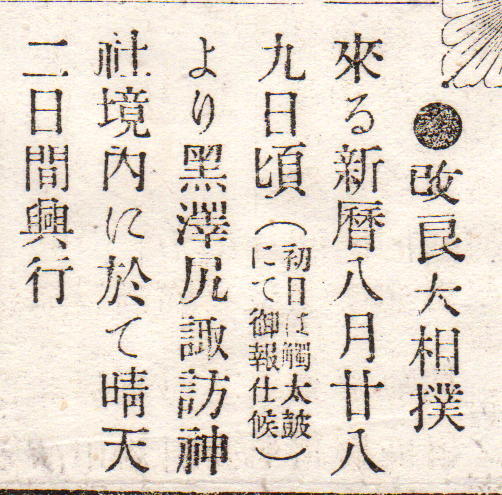 ●改良大相撲
來る新曆八月廿八
九日頃（初日は觸太皷にて御報仕候）
より黑澤尻諏訪神
社境內に於て晴天
二日間興行